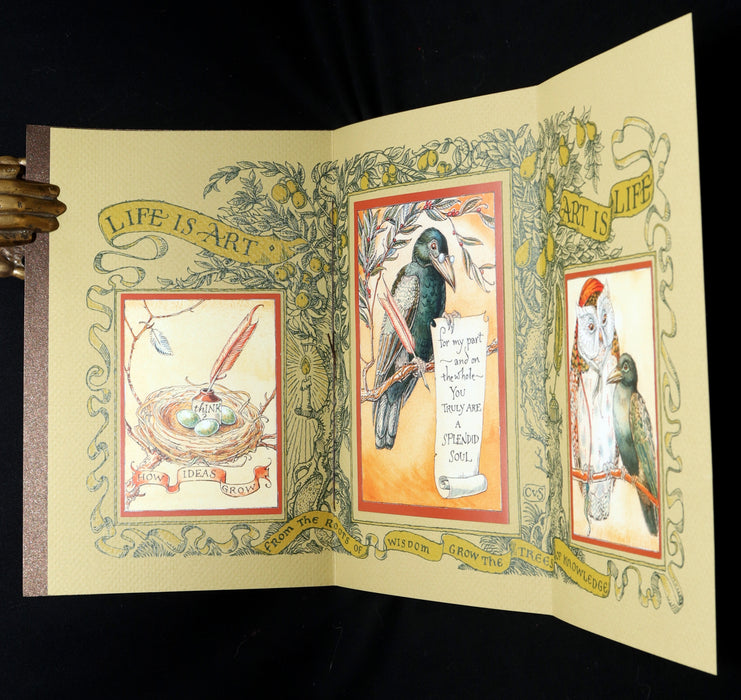 LIFE IS ART
ART IS LIFE
thINK
HOW IDEAS GROW
for my part
~ and on
the whole ~
YOU
TRULY ARE
A
SPLENDID
SOUL
CWS
FROM THE ROOTS OF WISDOM GROW THE TREES OF KNOWLEDGE